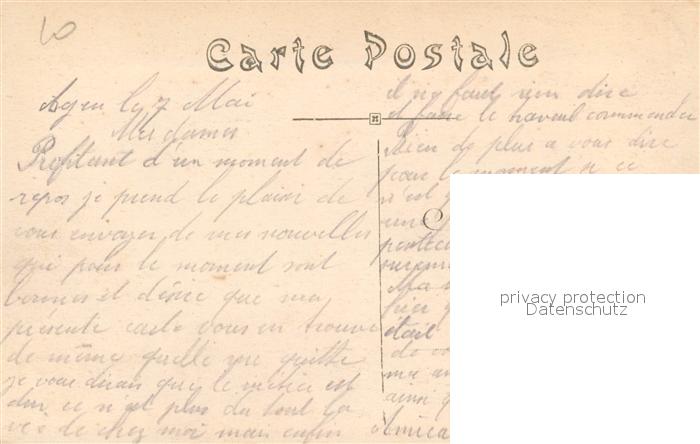 Carte Postale
Agen le 7 Mai
Mesdames
Profitant d'un moment de
repos je prend le plaisir de
vous envoyer de mes nouvelles
qui pour le moment sont
bonnes et désire que ma
présente carte vous en trouve
de même quelle que
je vous dirais que le métier est
dur ce n'est plus du tout la
vie de chez moi mais enfin
il ny faut rien dire
et faire le travail commander
Rien de plus a vous dire
pour le moment a ce
n'est
hier
était
de
ma
ainsi
amica
privacy protection
Datenschutz